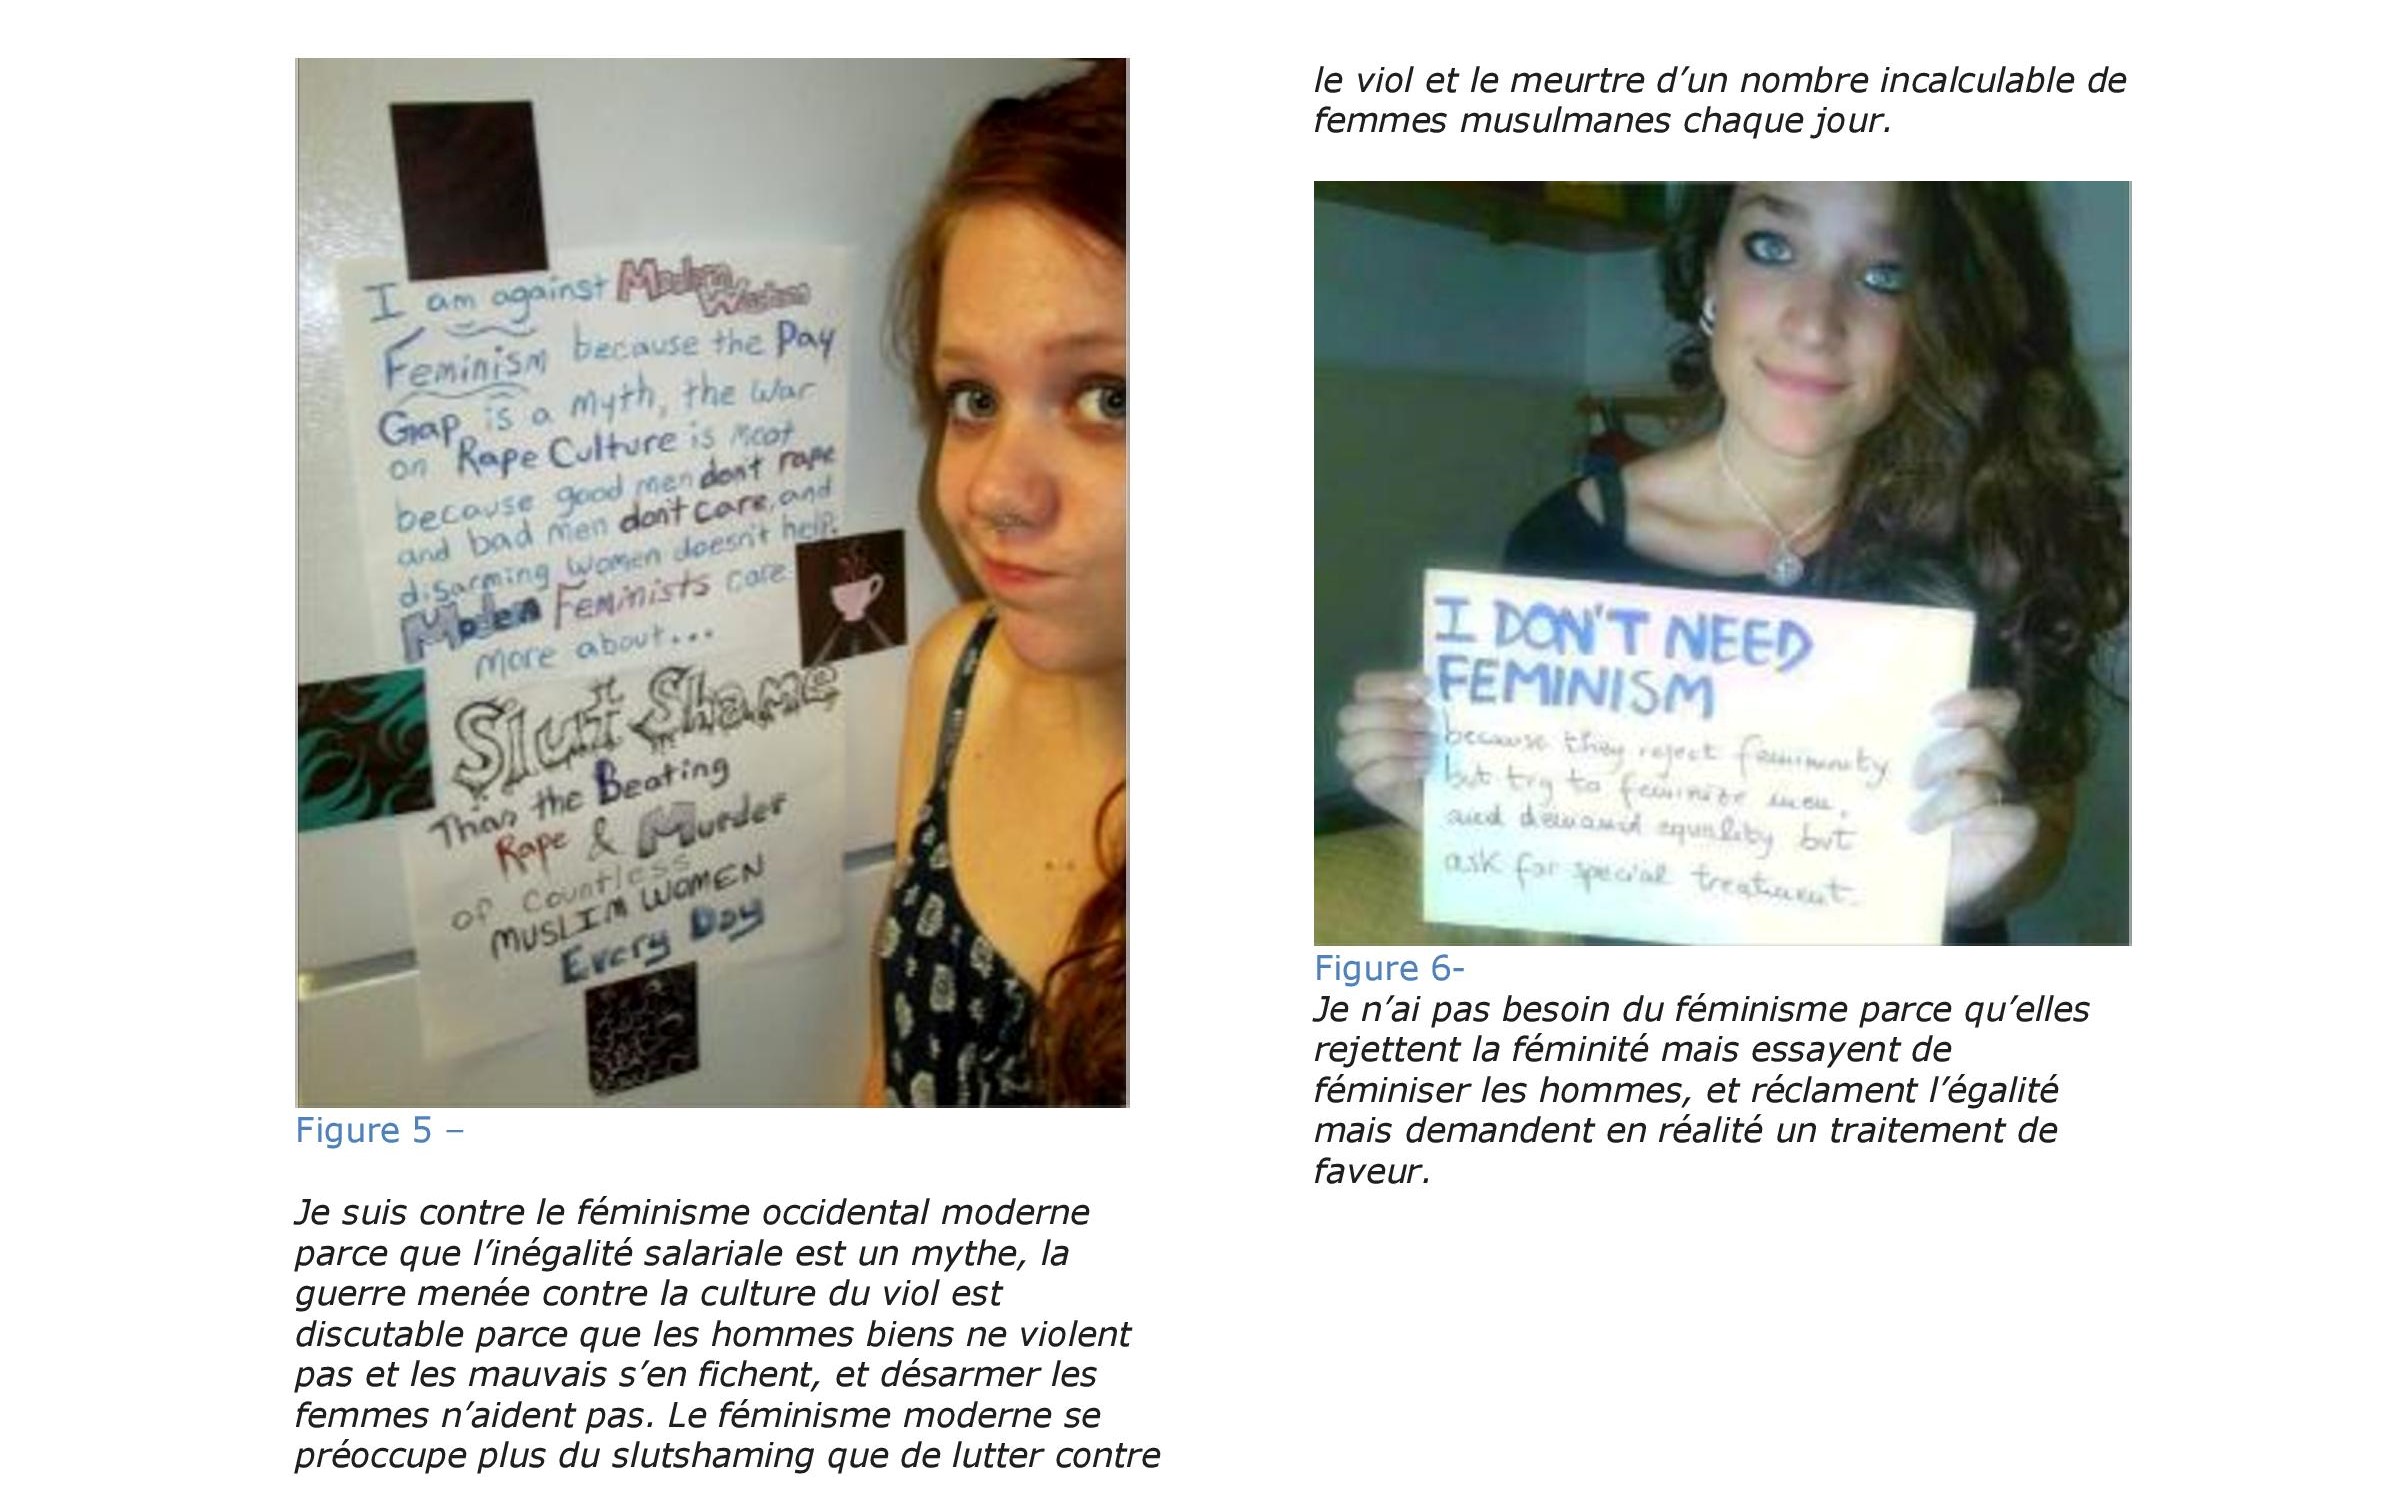 I am against Modern Western
Feminism because the Pay
Gap is a myth, the war
on Rape Culture is moot
because good men dont rape
and bad men dont care, and
disarming women doesn't help.
Modern Feminists care
more about...
Slut Shame
Than the Beating
Rape & Murder
of Countless
MUSLIM WOMEN
Every Day
Figure 5 –
Je suis contre le féminisme occidental moderne
parce que l’inégalité salariale est un mythe, la
guerre menée contre la culture du viol est
discutable parce que les hommes biens ne violent
pas et les mauvais s’en fichent, et désarmer les
femmes n’aident pas. Le féminisme moderne se
préoccupe plus du slutshaming que de lutter contre
le viol et le meurtre d’un nombre incalculable de
femmes musulmanes chaque jour.
I DON'T NEED
FEMINISM
because they reject femininity
but try to feminize men,
and demand equality but
ask for special treatment.
Figure 6-
Je n’ai pas besoin du féminisme parce qu’elles
rejettent la féminité mais essayent de
féminiser les hommes, et réclament l’égalité
mais demandent en réalité un traitement de
faveur.